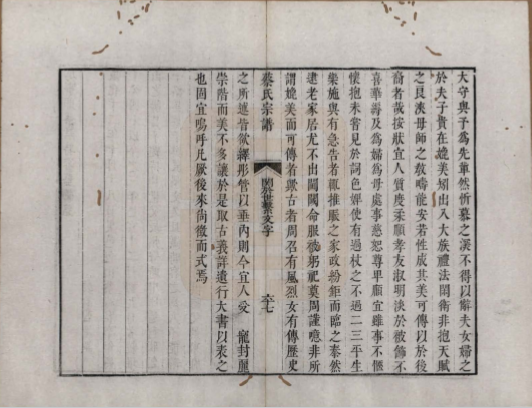 大守與予為先軰然忻慕之深不得以辭夫女婦之
於夫子貴在媲美矧出入大族禮法閑衛非抱天賦
之良渙母師之教疇能安若性成其美可傳以於後
裔者哉按狀宜人質度柔順孝友淑明決於被飾不
喜華溽及為婦為母處事慈恕尊卑順宜雖事不愜
懷抱未嘗見於詞色婢使有過杖之不過二三平生
樂施與有急告者輒推服之家政紛鉅而臨之泰然
逮老家居尤不出閫閾命服後躬祀奠周謹噫非所
謂媲美而可傳者歟古者周召有風烈女有傳歷史
蔡氏宗譜
闕裕世繫文字
六七
之所逓皆歛繹彤管以垂內則今宜人受 寵封麗
崇階而美不多讓於是取古義詳遺行大書以表之
也固宜嗚呼凡厥後来尚徵而式焉